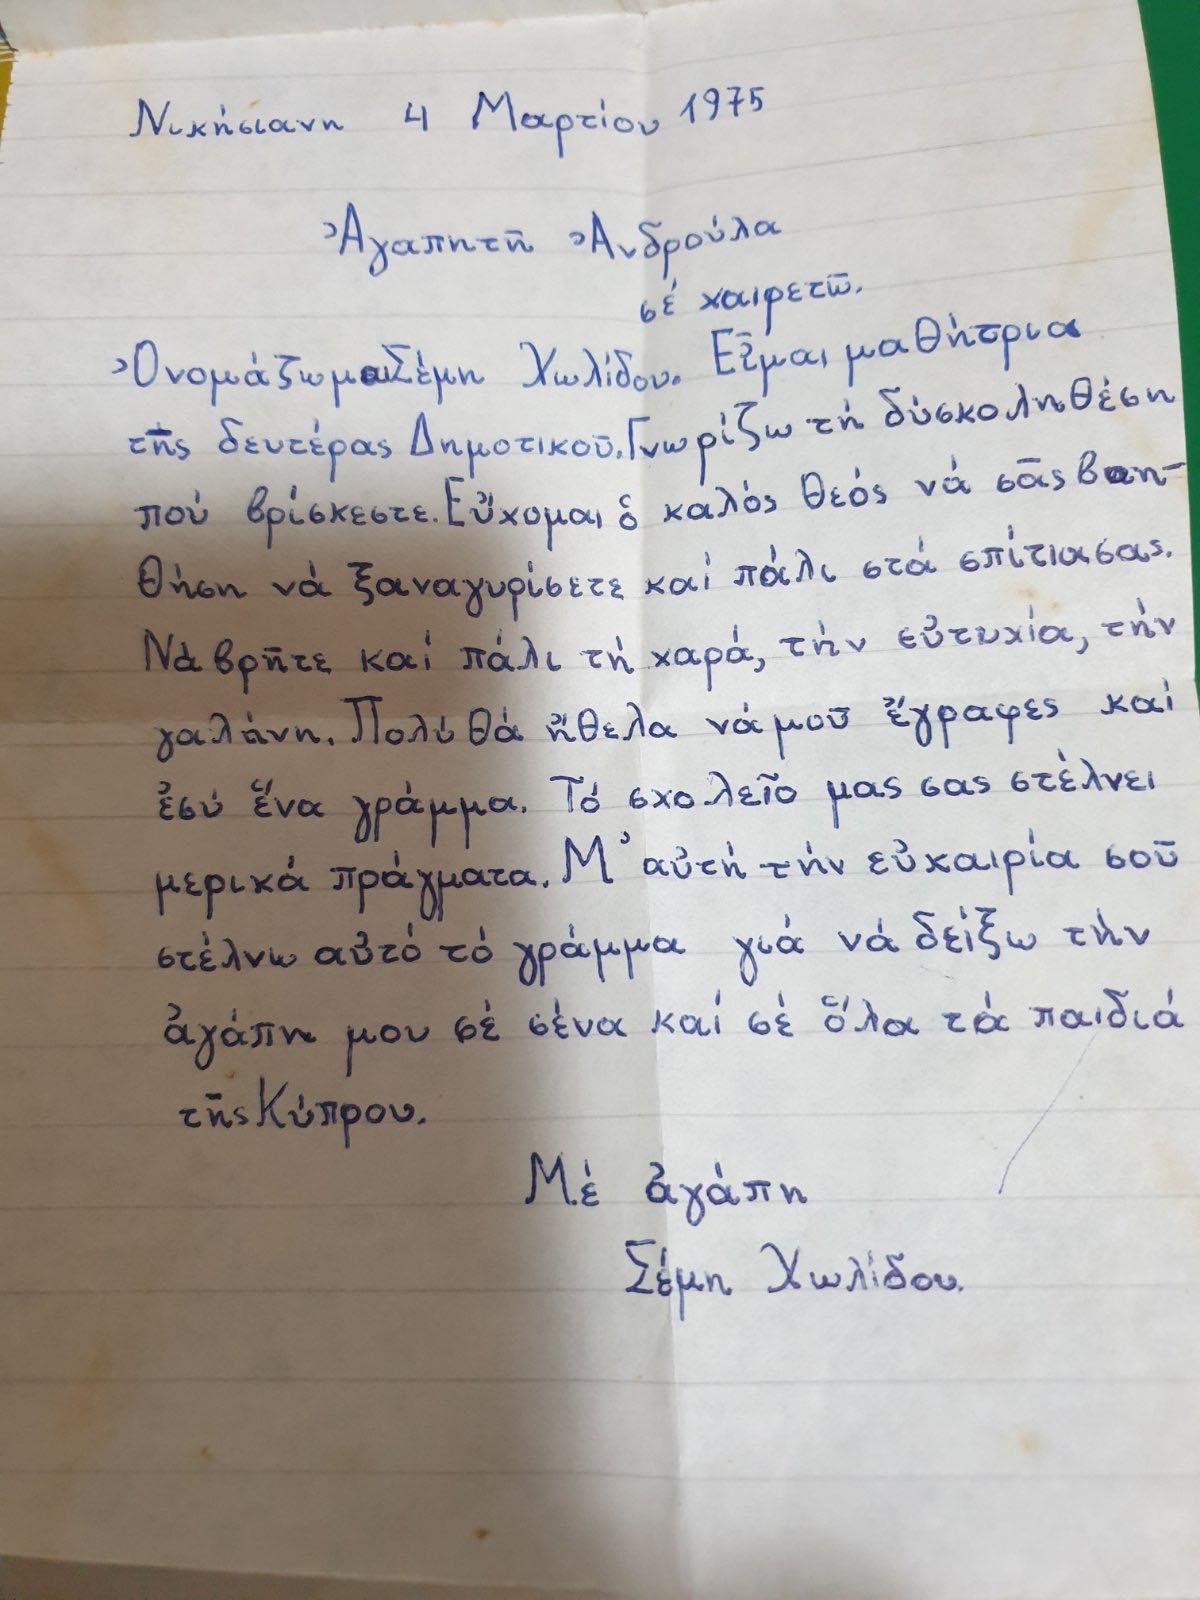 Νικήσιανη 4 Μαρτίου 1975
Ἀγαπητῆ Ἀνδρούλα
σέ χαιρετῶ.
Ὀνομάζωμαι Σέμη Χωλίδου. Εἶμαι μαθήτρια
τῆς δευτέρας Δημοτικοῦ. Γνωρίζω τή δύσκολη θέση
πού βρίσκεστε. Εὔχομαι ὁ καλός Θεός νά σᾶς βοη-
θήση νά ξαναγυρίσετε καί πάλι στά σπίτια σας.
Νά βρῆτε καί πάλι τή χαρά, τήν εὐτυχία, τήν
γαλήνη. Πολύ θά ἤθελα νά μοῦ ἔγραφες καί
ἐσύ ἕνα γράμμα. Τό σχολεῖο μας σας στέλνει
μερικά πράγματα. Μ' αὐτή τήν εὐκαιρία σοῦ
στέλνω αὐτό τό γράμμα γιά νά δείξω τήν
ἀγάπη μου σέ σένα καί σέ ὅλα τά παιδιά
τῆς Κύπρου.
Μέ ἀγάπη
Σέμη Χωλίδου.